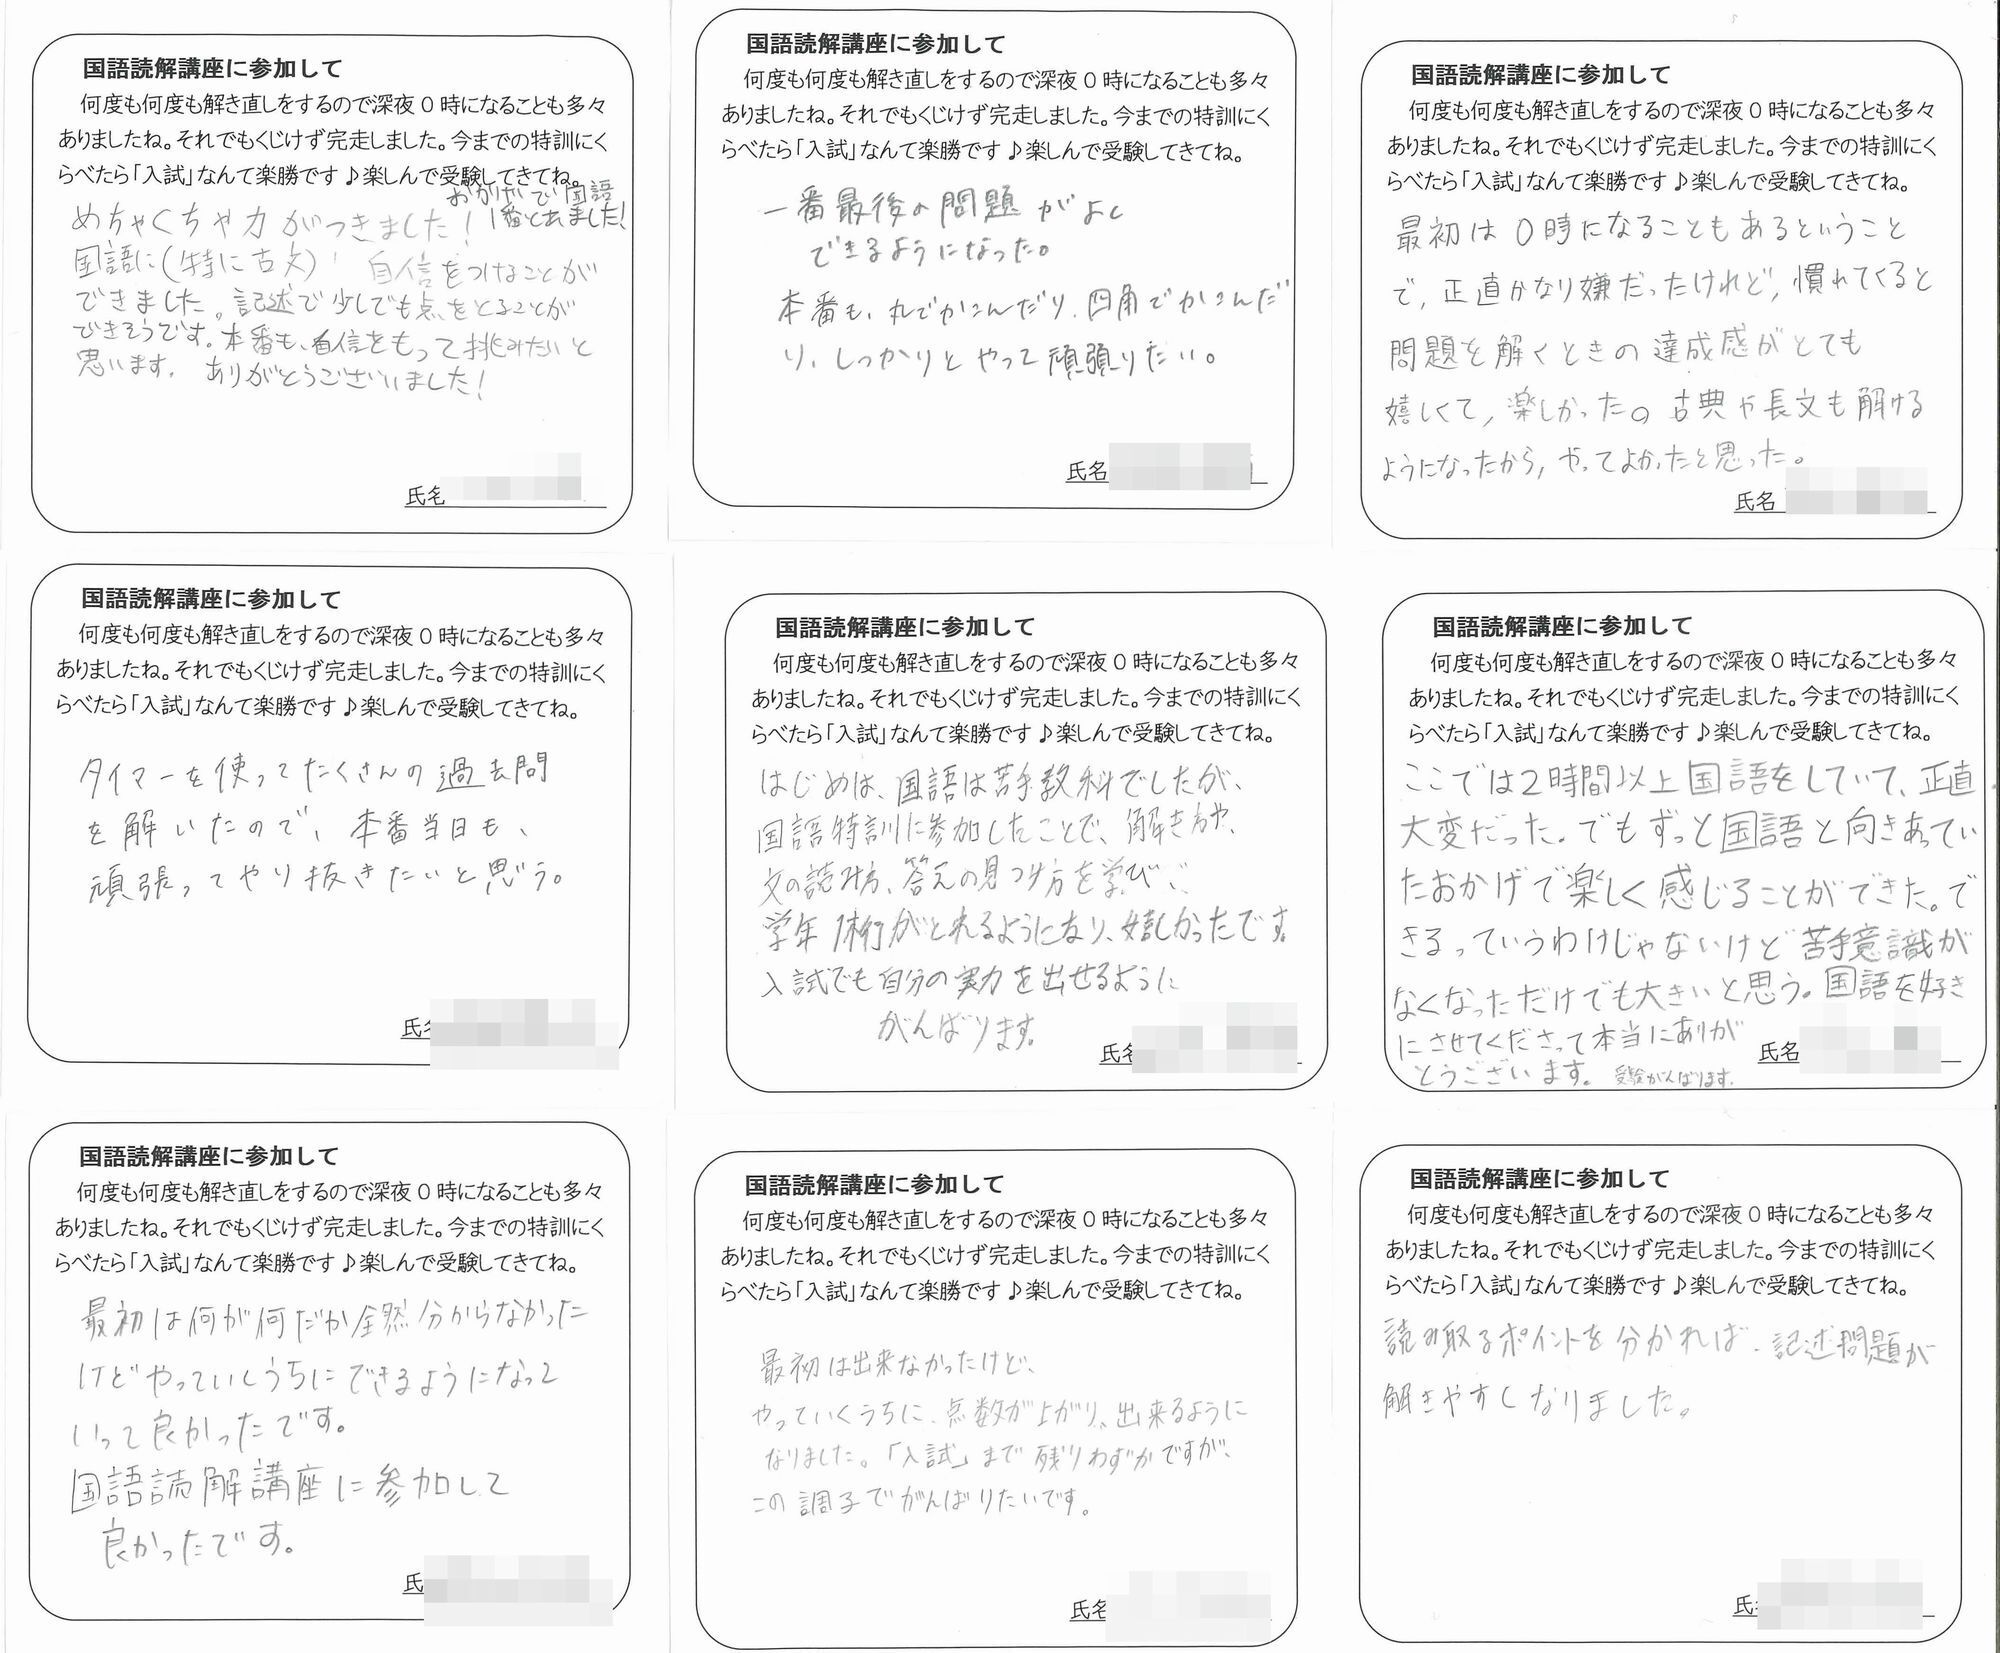 国語読解講座に参加して
何度も何度も解き直しをするので深夜０時になることも多々
ありましたね。それでもくじけず完走しました。今までの特訓にく
らべたら「入試」なんて楽勝です♪楽しんで受験してきてね。
おかげで国語
1番とれました!
めちゃくちゃ力がつきました!
国語に(特に古文) 自信をつけることが
できました。記述で少しでも点をとることが
できそうです。本番も、自信をもって挑みたいと
思います。ありがとうございました!
氏名
国語読解講座に参加して
何度も何度も解き直しをするので深夜０時になることも多々
ありましたね。それでもくじけず完走しました。今までの特訓にく
らべたら「入試」なんて楽勝です♪楽しんで受験してきてね。
一番最後の問題がよく
できるようになった。
本番も、丸でかこんだり、四角でかこんだ
り、しっかりとやって頑張りたい。
氏名
国語読解講座に参加して
何度も何度も解き直しをするので深夜０時になることも多々
ありましたね。それでもくじけず完走しました。今までの特訓にく
らべたら「入試」なんて楽勝です♪楽しんで受験してきてね。
最初は0時になることもあるということ
で,正直かなり嫌だったけれど,慣れてくると
問題を解くときの達成感がとても
嬉しくて,楽しかった。古典や長文も解ける
ようになったから,やってよかったと思った。
氏名
国語読解講座に参加して
何度も何度も解き直しをするので深夜０時になることも多々
ありましたね。それでもくじけず完走しました。今までの特訓にく
らべたら「入試」なんて楽勝です♪楽しんで受験してきてね。
タイマーを使ってたくさんの過去問
を解いたので、本番当日も、
頑張ってやり抜きたいと思う。
氏
国語読解講座に参加して
何度も何度も解き直しをするので深夜０時になることも多々
ありましたね。それでもくじけず完走しました。今までの特訓にく
らべたら「入試」なんて楽勝です♪楽しんで受験してきてね。
はじめは、国語は苦手教科でしたが、
国語特訓に参加したことで、解き方や、
文の読み方、答えの見つけ方を学び、
学年1桁がとれるようになり、嬉しかったです。
入試でも自分の実力を出せるように
がんばります。
氏名
国語読解講座に参加して
何度も何度も解き直しをするので深夜０時になることも多々
ありましたね。それでもくじけず完走しました。今までの特訓にく
らべたら「入試」なんて楽勝です♪楽しんで受験してきてね。
ここでは2時間以上国語をしていて、正直
大変だった。でもずっと国語と向きあってい
たおかげで楽しく感じることができた。で
きるっていうわけじゃないけど苦手意識が
なくなっただけでも大きいと思う。国語を好き
にさせてくださって本当にありが
とうございます。受験がんばります。
氏名
国語読解講座に参加して
何度も何度も解き直しをするので深夜０時になることも多々
ありましたね。それでもくじけず完走しました。今までの特訓にく
らべたら「入試」なんて楽勝です♪楽しんで受験してきてね。
最初は何が何だか全然分からなかった
けどやっていくうちにできるようになって
いって良かったです。
国語読解講座に参加して
良かったです。
氏
国語読解講座に参加して
何度も何度も解き直しをするので深夜０時になることも多々
ありましたね。それでもくじけず完走しました。今までの特訓にく
らべたら「入試」なんて楽勝です♪楽しんで受験してきてね。
最初は出来なかったけど、
やっていくうちに、点数が上がり、出来るように
なりました。「入試」まで残りわずかですが、
この調子でがんばりたいです。
氏名
国語読解講座に参加して
何度も何度も解き直しをするので深夜０時になることも多々
ありましたね。それでもくじけず完走しました。今までの特訓にく
らべたら「入試」なんて楽勝です♪楽しんで受験してきてね。
読み取るポイントを分かれば、記述問題が
解きやすくなりました。
氏